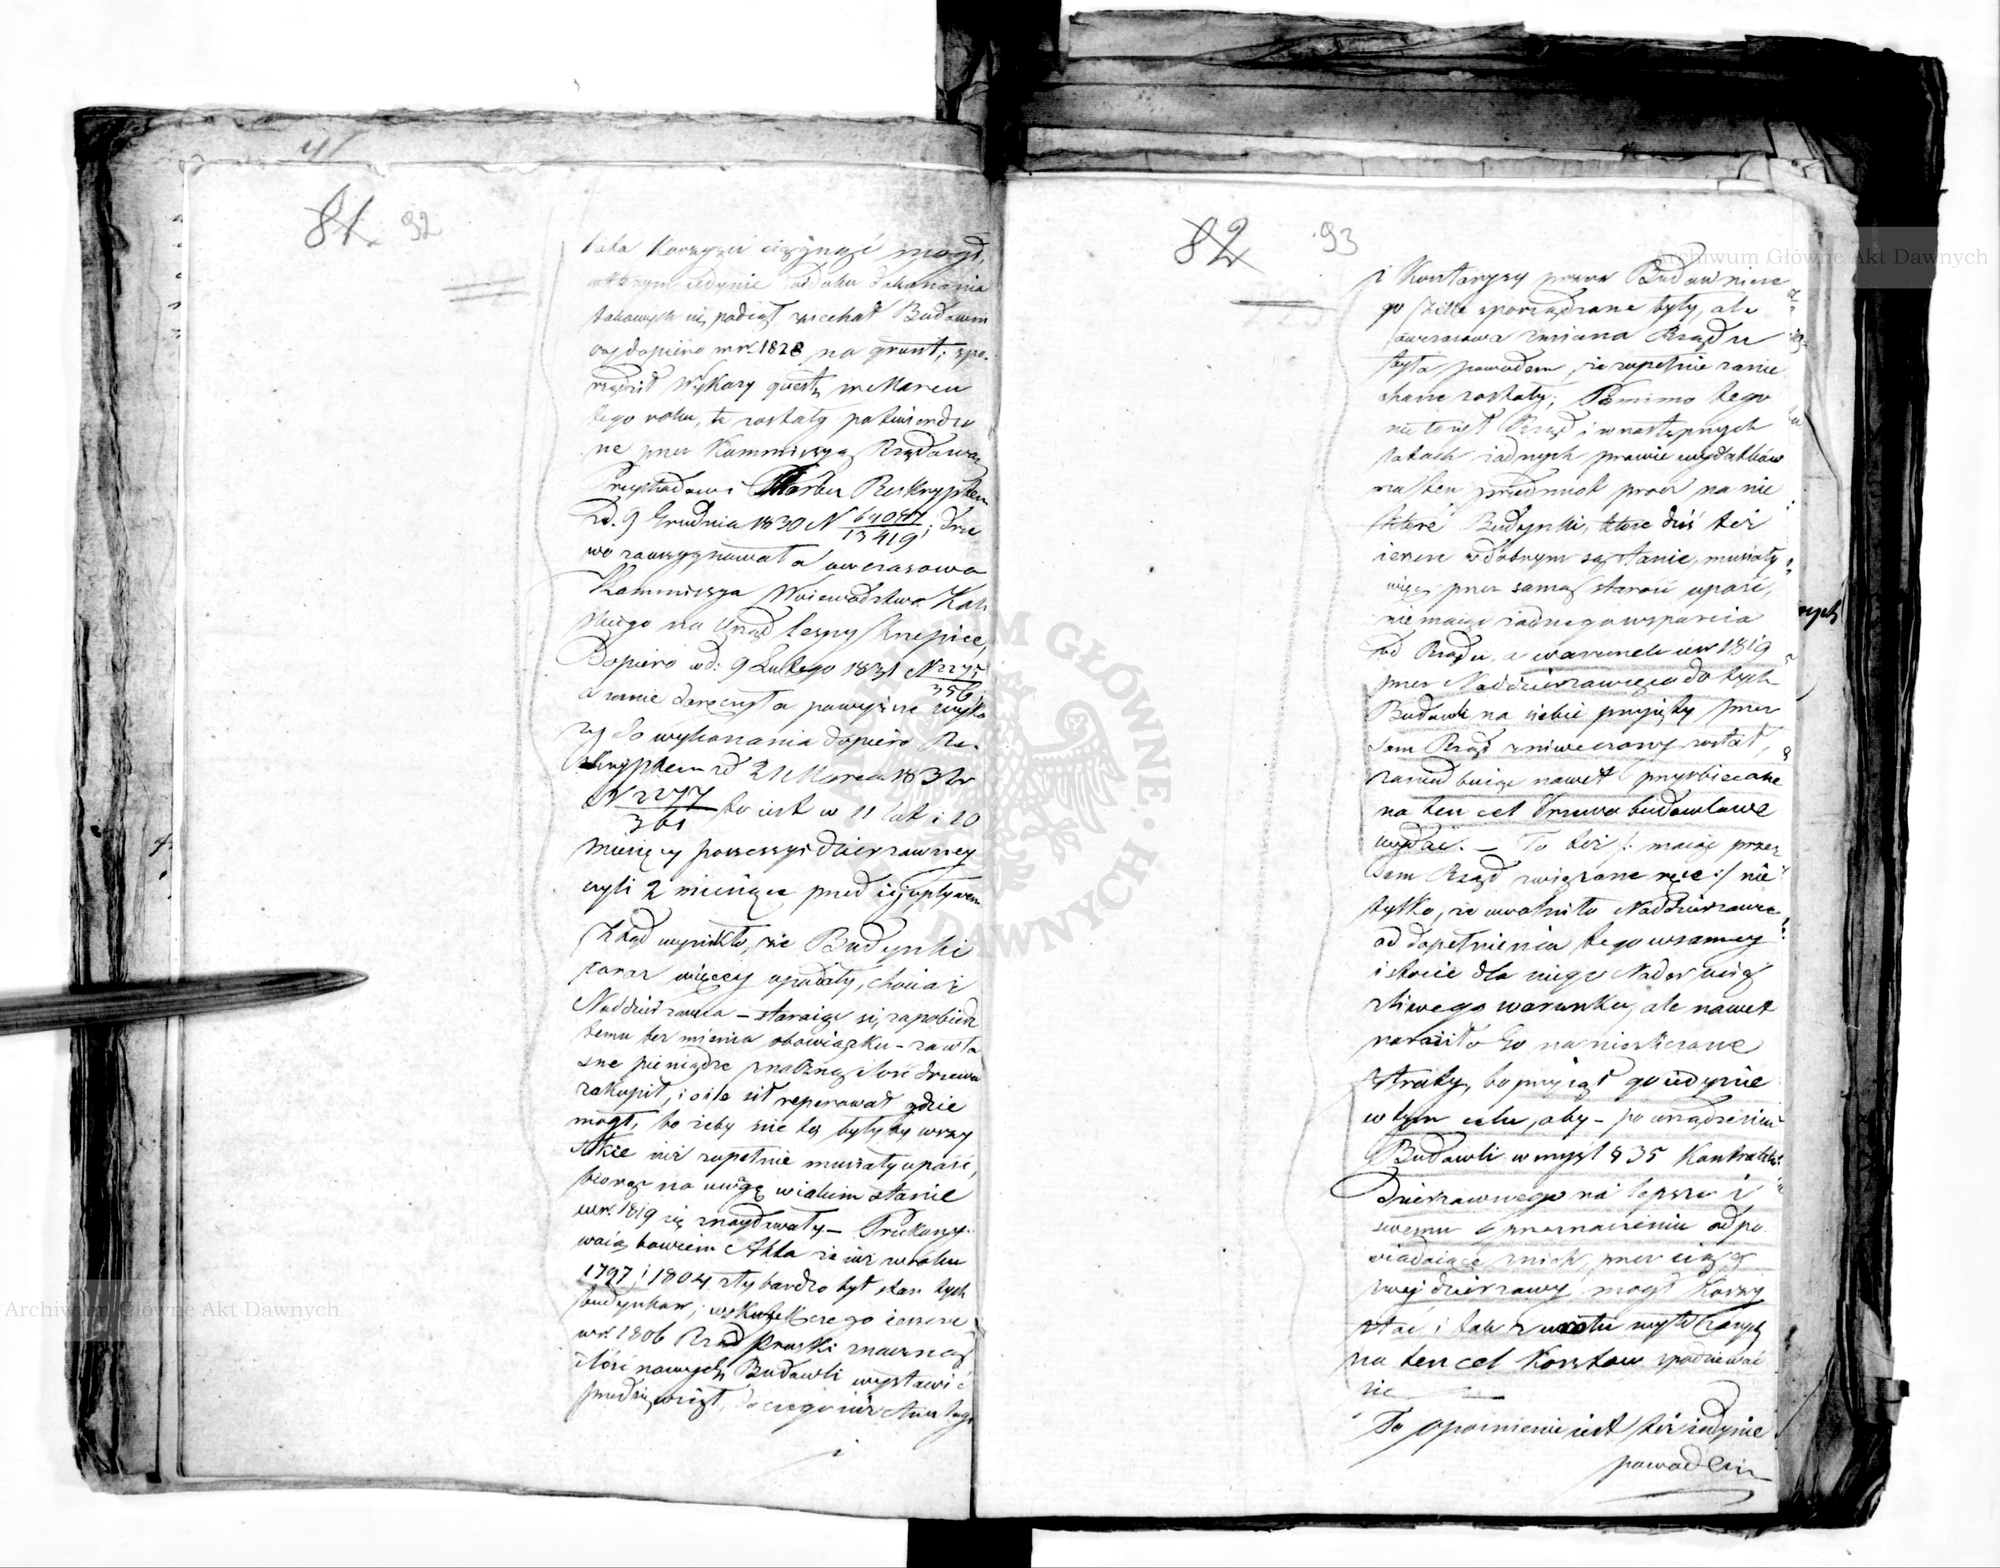 81. 92
korzyści ciągnąć mogł,
jedynie
takowych się podiął zjechał Budown
czy dopiero w r. 1828 na grunt; spo-
rządził Wykazy w Marcu
tego roku, te zostały potwierdzo
ne przez Kommissyą Rządową
Przychodow i Skarbu Reskryptem
z d. 9 Grudnia 1830 N
13419; drze
wo zaassygnowała owczasowa
Kommissya Woiewodztwa Kali
skiego na Urząd leśny Krzepice,
Dopiero w d: 9 Lutego 1831 N 2275
356
a mnie doręczyła powyższe wyka
zy do wykonania dopiero Re-
skryptem z d 21 Marca 183
N 2277
361 to iest w 11 lat i 10
miesięcy possessyi dzierzawney
czyli 2 miesiące przed iej upływem
Ztąd wynikło, że Budynki
coraz więcey upadały, chociaż
Naddzierzawca – staraiąc się zapobiedz
temu bez mienia obowiązku – za wła
sne pieniądze znaczną ilość drzewa
zakupił, i o ile sił reperował gdzie
mogł, bo żeby nie to, byłyby wszy
stkie iuż zupełnie musiały upaść,
biorąc na uwagę w iakim stanie
w r. 1819 się znaydowały – Przekony-
waią bowiem Akta że iuż w roku
1797 i 1804 zły bardzo był stan tych
budynkow, wskutek czego ieszcze
w r. 1806 Rząd Pruski znaczną
ilość nowych Budowli wystawić
przedsięwziął, do czego iuż Anszlagi
i
82 93
i Kontrypsy przez Budownicze
go sporządzone były, ale
owczasowa zmiana Rządu
była powodem, że zupełnie zanie
chane zostały; Pomimo tego
nie łożył Rząd i w następnych
latach żadnych prawie wydatków
na ten przedmiot procz na nie
ktore Budynki, ktore dziś też
ieszcze w dobrym są stanie, musiały
więc przez samą starość upaść,
nie maiąc żadnego wsparcia
od Rządu, a warunek w r 1819
przez Naddzierzawcę co do tych
Budowli na siebie przyięty przez
sam Rząd zniweczony został,
zaniedbuiąc nawet przyobiecane
na ten cel Drzewo budowlowe
wydać. – To też /: maiąc przez
sam Rząd związane ręce :/ nie
tylko, że uwolniło Naddzierzawcę
od dopełnienia tego w samey
istocie dla niego Nader uciąż
liwego warunku, ale nawet
naraziło Go na nieobliczone
straty, bo przyiął go iedynie
w tym celu, aby – po urządzeniu
Budowli w myśl § 35 Kontraktu
Dzierzawnego na lepsze i
swemu przeznaczeniu odpo
wiadaiące z nich przez ciąg
swej dzierzawy mogł korzy
stać i tak zwrotu wyłożonych
na ten cel Kosztow spodziewać
się
To opoźnienie iest też iedynie
powodem